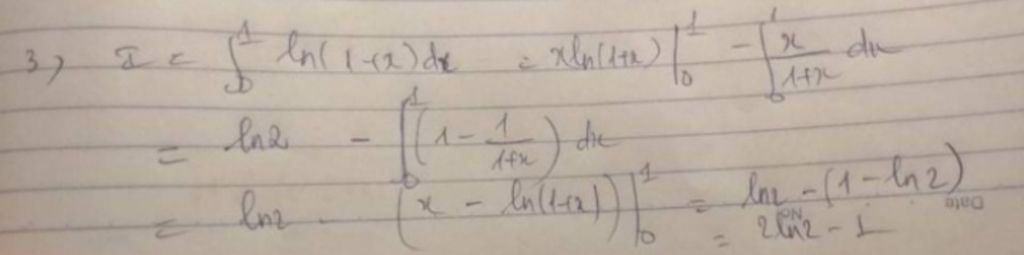 3) I = ∫₀¹ ln(1+x)dx = xln(1+x)|₀¹ - ∫₀¹ x/(1+x) dx
= ln2 - ∫₀¹ (1 - 1/(1+x)) dx
= ln2 - (x - ln(1+x))|₀¹ = ln2 - (1 - ln2)
= 2ln2 - 1
Date
No